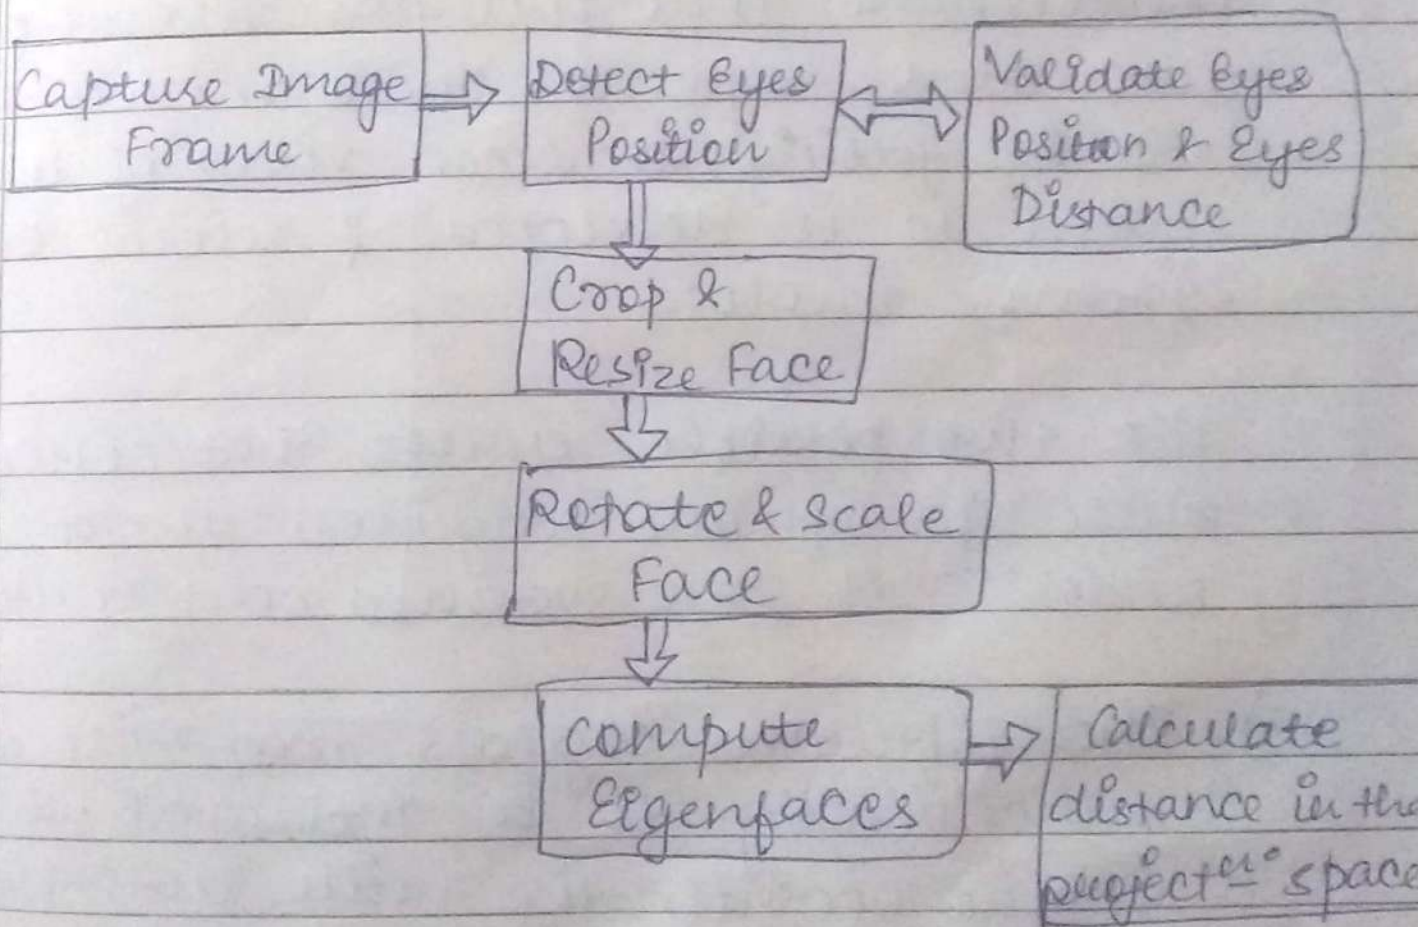 Capture Image
Frame
Detect Eyes
Position
Validate Eyes
Position & Eyes
Distance
Crop &
Resize Face
Rotate & Scale
Face
Compute
Eigenfaces
Calculate
distance in the
space